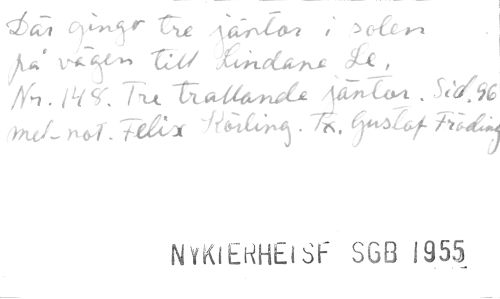 Där gingo tre jäntor i solen
på vägen till Lindane Le,
Nr. 148. Tre trallande jäntor. Sid. 96
med not. Felix Körling. Tx. Gustaf Fröding
NYKTERHETSF SGB 1955